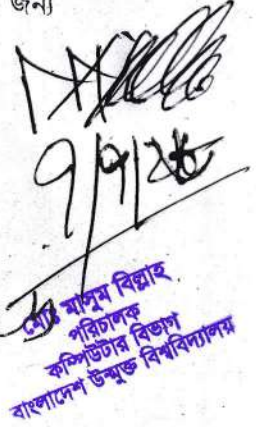 জন্য
৭/৭/২৫
মোঃ মাসুম বিল্লাহ
পরিচালক
কম্পিউটার বিভাগ
বাংলাদেশ উন্মুক্ত বিশ্ববিদ্যালয়